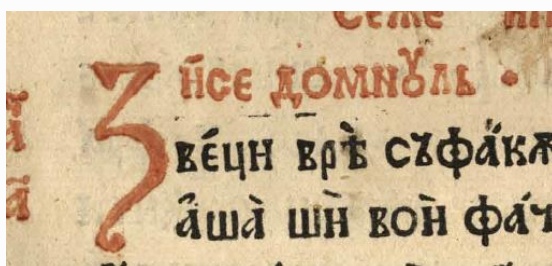 Зи́се домнꙋль ·
ве́ци врѣ̀ съфа́кѫ
а҆ша̀ шѝ вои̂ фа́ч